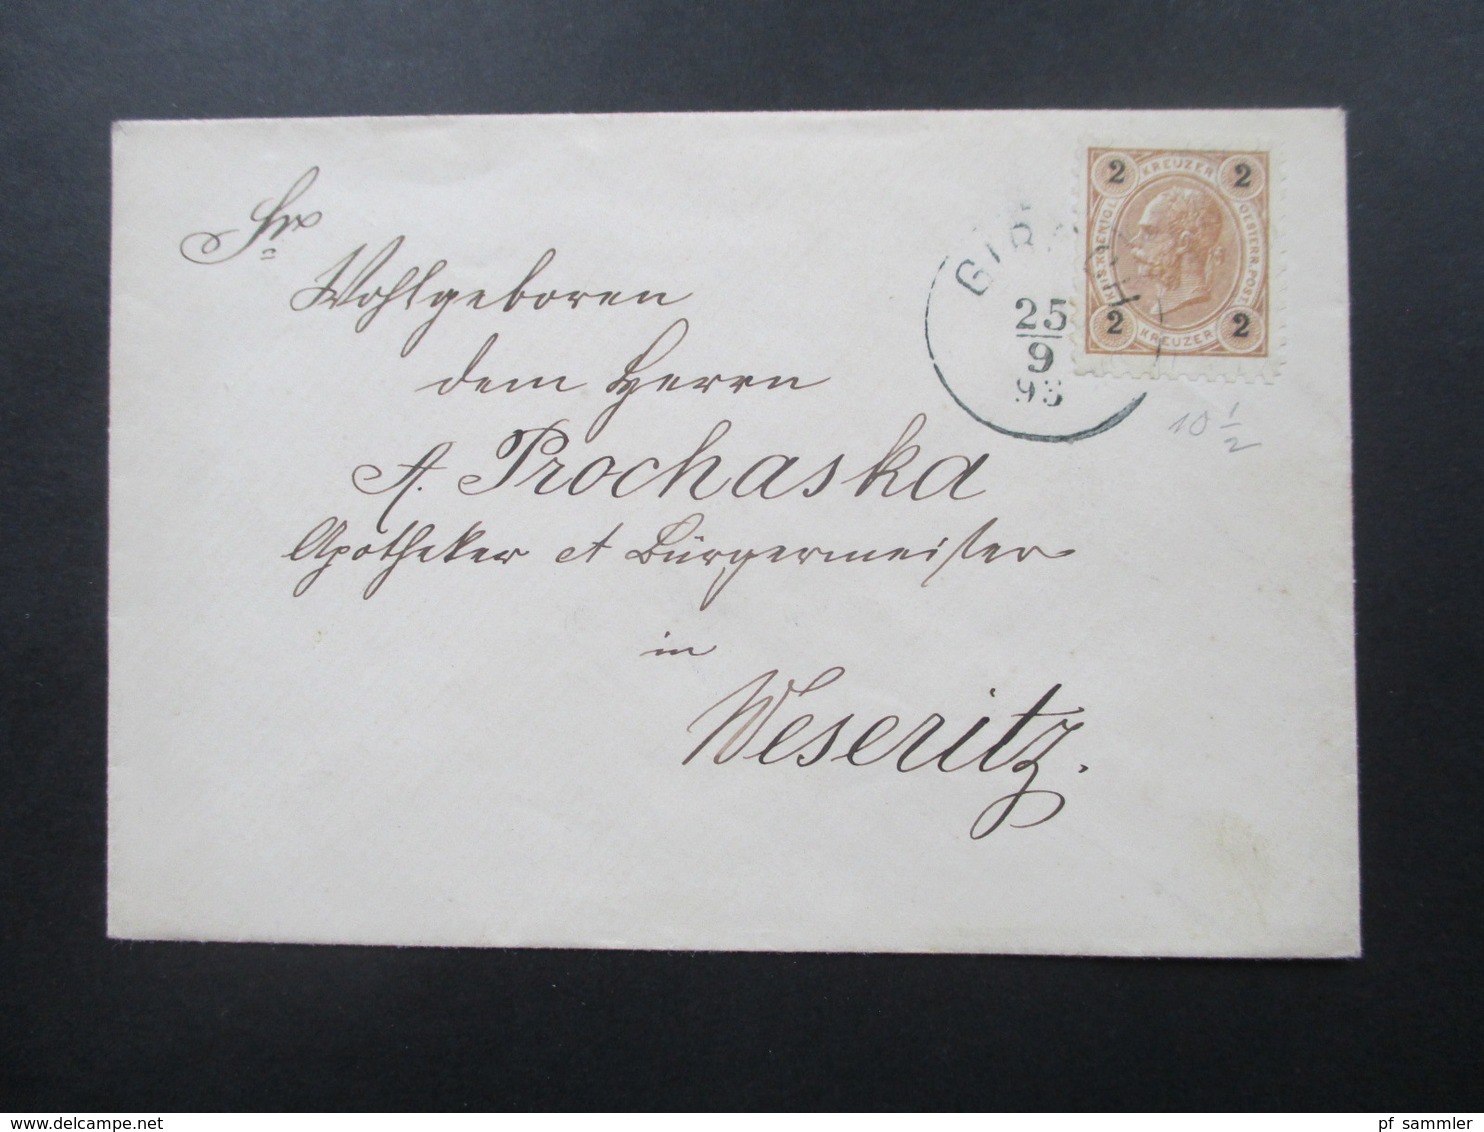 Sr
Wohlgeboren
dem Herrn
A. Prochaska
Apotheker et Bürgermeister
in
Weseritz.
25
9
93
2 KREUZER 2
KAIS. KOENIGL. OESTERR. POST.
2 KREUZER 2
10 1/2
www.delcampe.net
pf_sammler